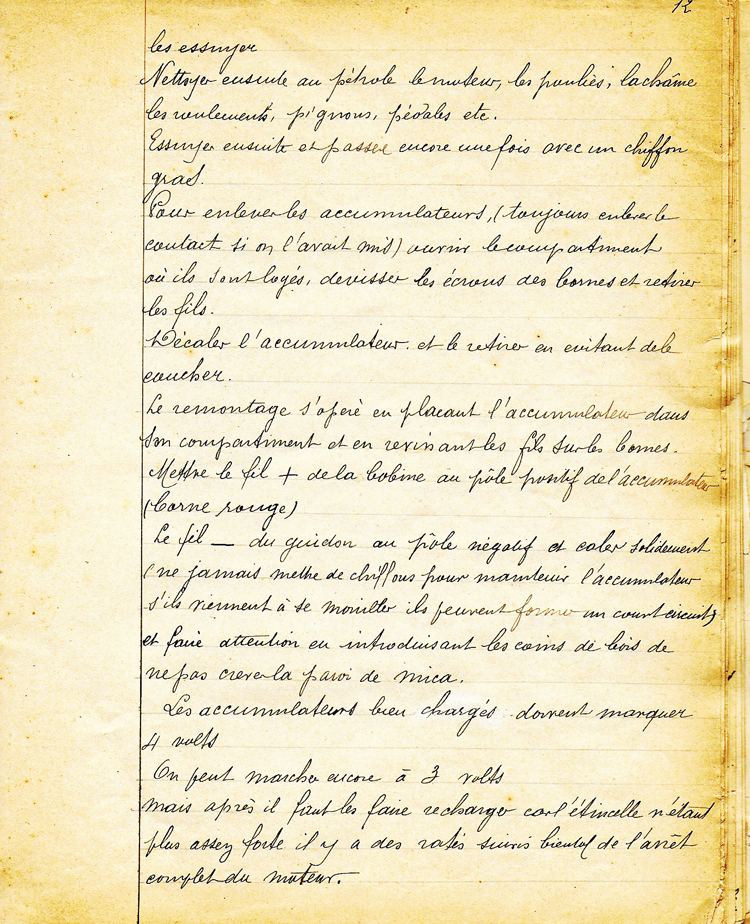 12
les essuyer
Nettoyer ensuite au pétrole le moteur, les poulies, la chaîne
les roulements, pignons, pédales etc.
Essuyer ensuite et passer encore une fois avec un chiffon
gras.
Pour enlever les accumulateurs, (toujours enlever le
contact si on l'avait mis) ouvrir le compartiment
où ils sont logés, devisser les écrous des bornes et retirer
les fils.
Décaler l'accumulateur. et le retirer en evitant de le
coucher.
Le remontage s'opère en placant l'accumulateur dans
son compartiment et en revissant les fils sur les bornes.
Mettre le fil + de la bobine au pôle positif de l'accumulateur
(borne rouge)
Le fil — du guidon au pôle négatif et caler solidement
(ne jamais mettre de chiffons pour maintenir l'accumulateur
s'ils viennent à se mouiller ils peuvent former un court circuit)
et faire attention en introduisant les coins de bois de
ne pas crever la paroi de mica.
Les accumulateurs bien chargés doivent marquer
4 volts
On peut marcher encore à 3 volts
mais après il faut les faire recharger car l'étincelle n'étant
plus assez forte il y a des ratés suivis bientôt de l'arrêt
complet du moteur.